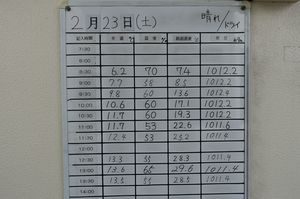 2月23日(土) 晴れ/ドライ
記入時間 気温 湿度 路面温度 気圧
7:30
8:00
8:30 6.2 70 7.4 1012.2
9:00 7.7 68 8.5 1012.2
9:30 9.8 60 13.6 1012.4
10:00 10.6 60 17.1 1012.2
10:30 11.7 60 19.3 1012.2
11:00 11.7 53 22.6 1011.6
11:30 12.4 53 23.2 1011.4
12:00
12:30 13.3 55 28.3 1011.4
13:00 13.6 65 29.6 1011.4
13:30 13.5 55 28.5 1011.4
14:00